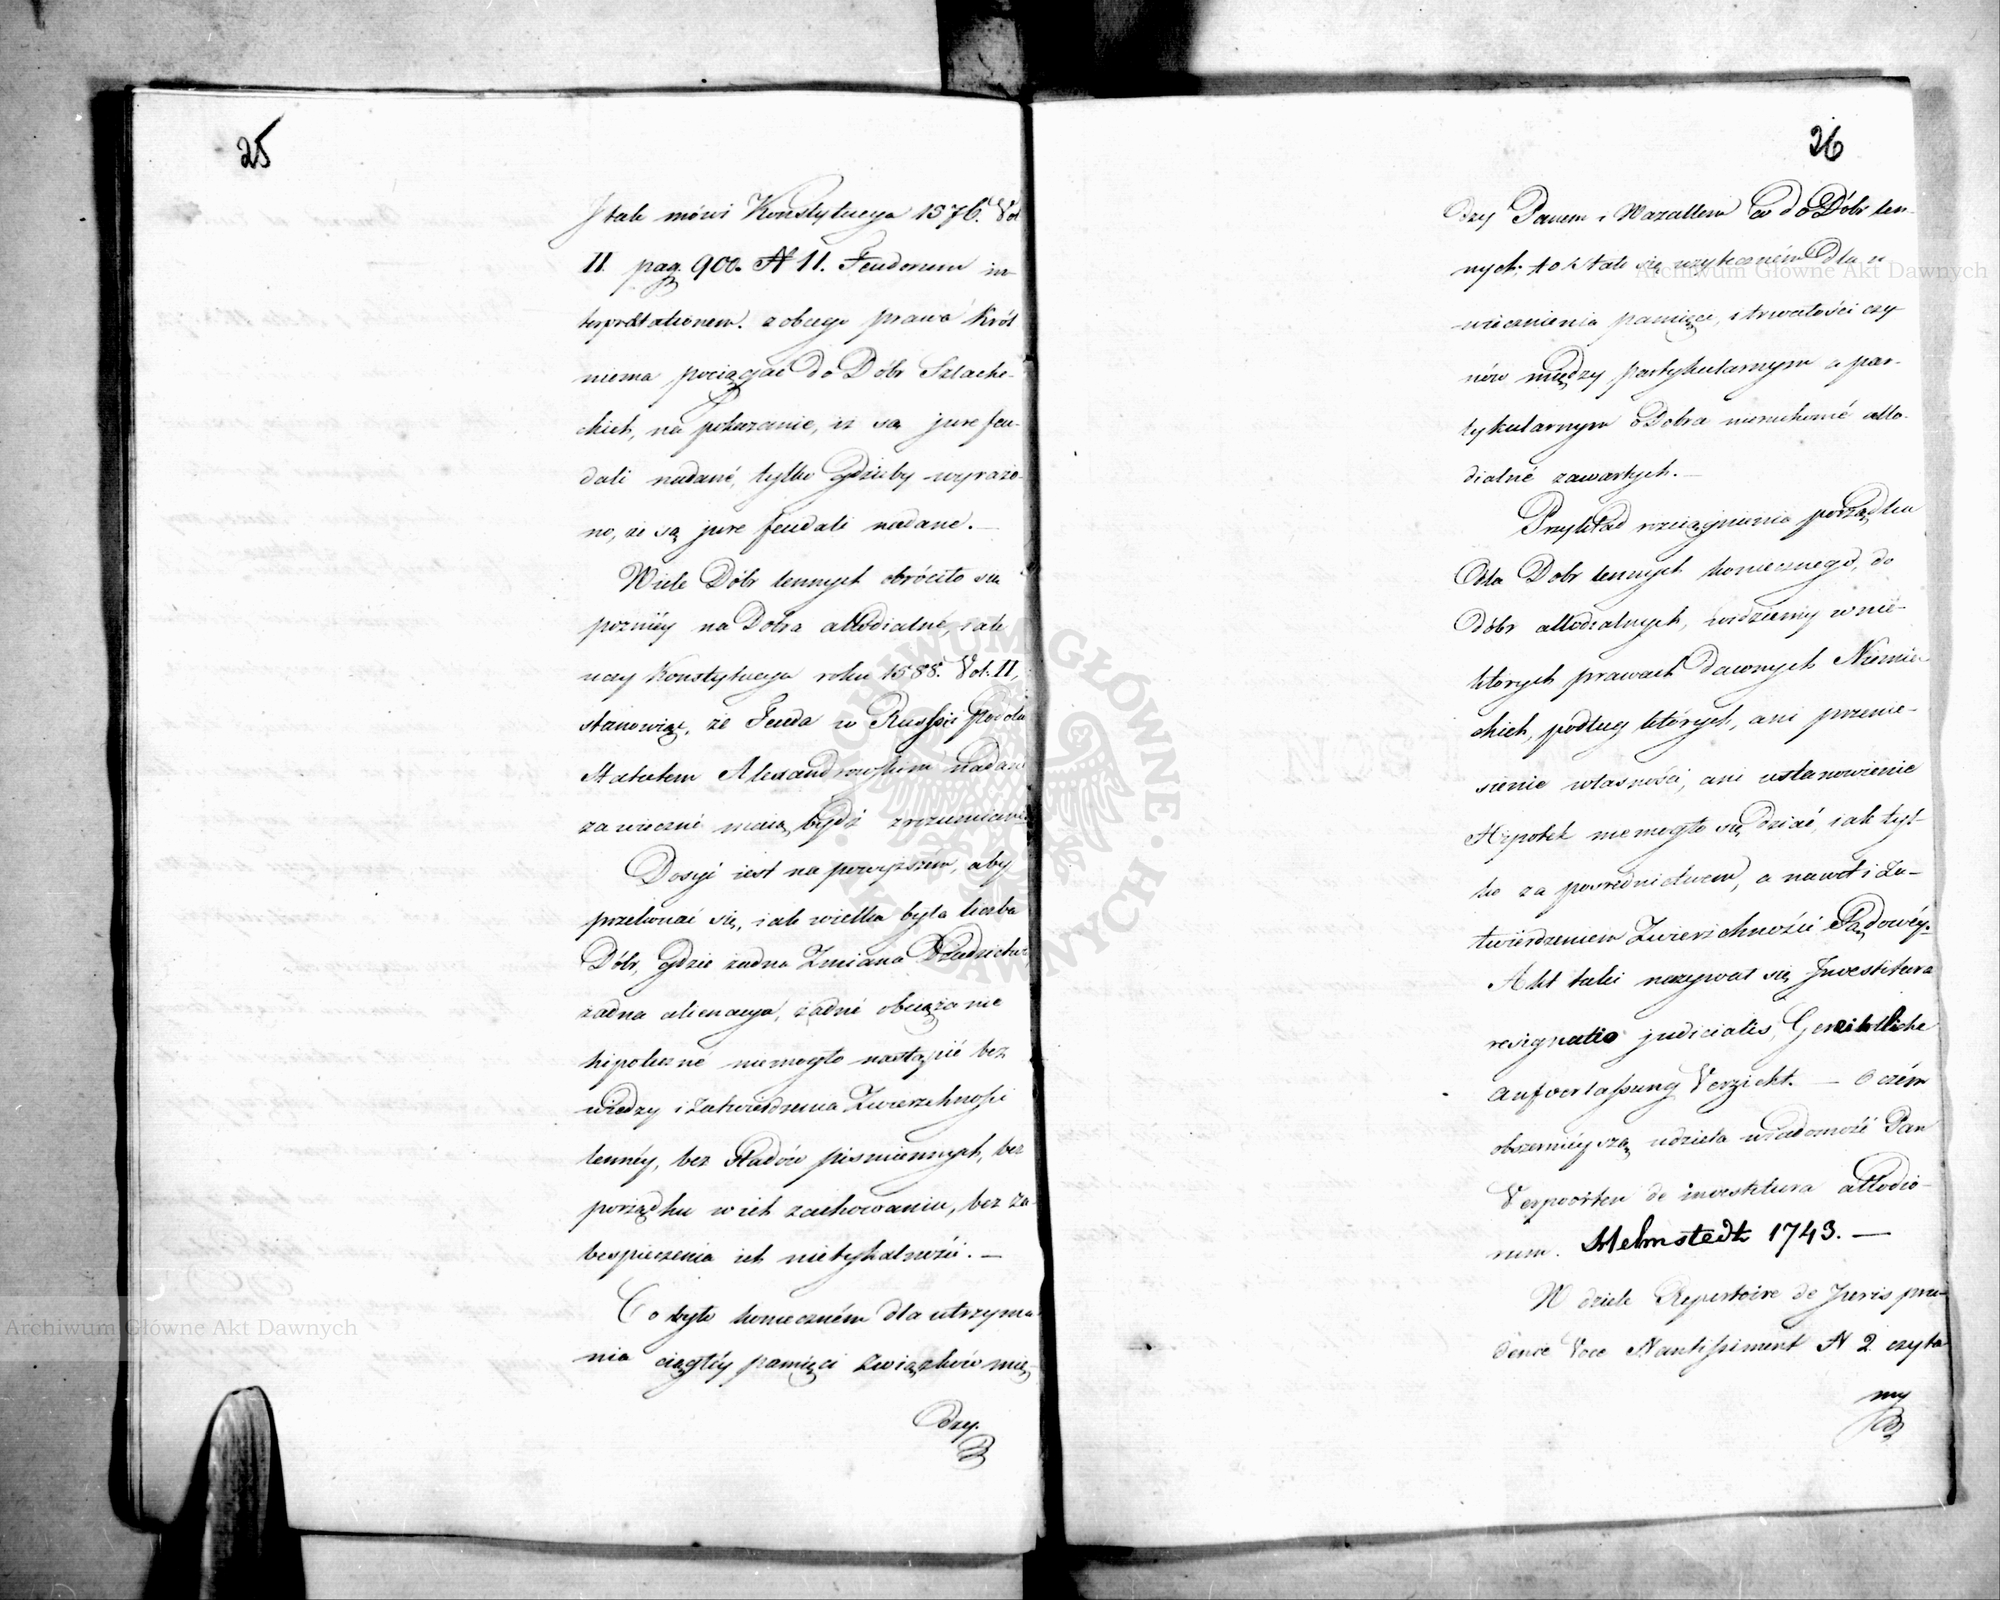 25
I tak mówi Konstytucya 1576. Vol
II. pag. 900. N 11. Feudorum in-
terpretationem. z obcego prawa Król
niema pociągać do Dóbr Szlache-
ckich, na pokazanie, iż są jure feu-
dali nadané, tylko gdzieby wyrażo-
no, że są jure feudali nadane. —
Wiele Dóbr lennych obróciło się
pozniéy na Dobra allodialné, iak
uczy Konstytucya roku 1588. Vol. II,
stanowiąc, że Feuda w Russii Podolu
Statutem Alexandrowskim nadané
za wieczné maią bydź zrozumiané
Dosyć iest na powyższém, aby
przekonać się, iak wielka była liczba
Dóbr, gdzie żadna Zmiana Dziedzictwa,
żadna alienacya, żadné obciążanie
hipoteczné niemogło nastąpić bez
wiedzy i Zatwierdzenia Zwierzchności
lennéy, bez śladów pismiennych, bez
porządku w ich zachowaniu, bez za-
bespieczenia ich nietykalności. —
Co było konieczném dla utrzyma-
nia ciągłéy pamięci Związków mię-
dzy.
26
dzy Panem i Wazallem co do Dóbr len-
nych; to stało się użyteczném dla u
wiecznienia pamięci, i trwałości czy-
nów między partykularnym a par-
tykularnym o Dobra nieruchomé allo-
dialné zawartych. —
Przykład rozciągnienia porządku
dla Dobr lennych koniecznego, do
dóbr allodialnych, widziemy w nie-
których prawach dawnych Niemie-
ckich, podług których, ani przenie-
sienie własności, ani ustanowienie
Hipotek niemogło się dziać, iak tyl-
ko za posrednictwem, a nawet i Za-
twierdzeniem Zwierzchności Sądowéy.
Akt taki nazywał się Investitura
resignatio judicialis, Gerichtliche
Auferlassung Verzicht. — O czém
obszernieyszą udziela wiadomość Pan
Verpoorten de investitura allodio-
rum. Helmstedt 1743. —
W dziele Repertoire de Jurispru-
dence Voce Nantissiment N 2 czyta-
my
Archiwum Główne Akt Dawnych
Archiwum Główne Akt Dawnych
ARCHIWUM GŁÓWNE · AKT DAWNYCH ·